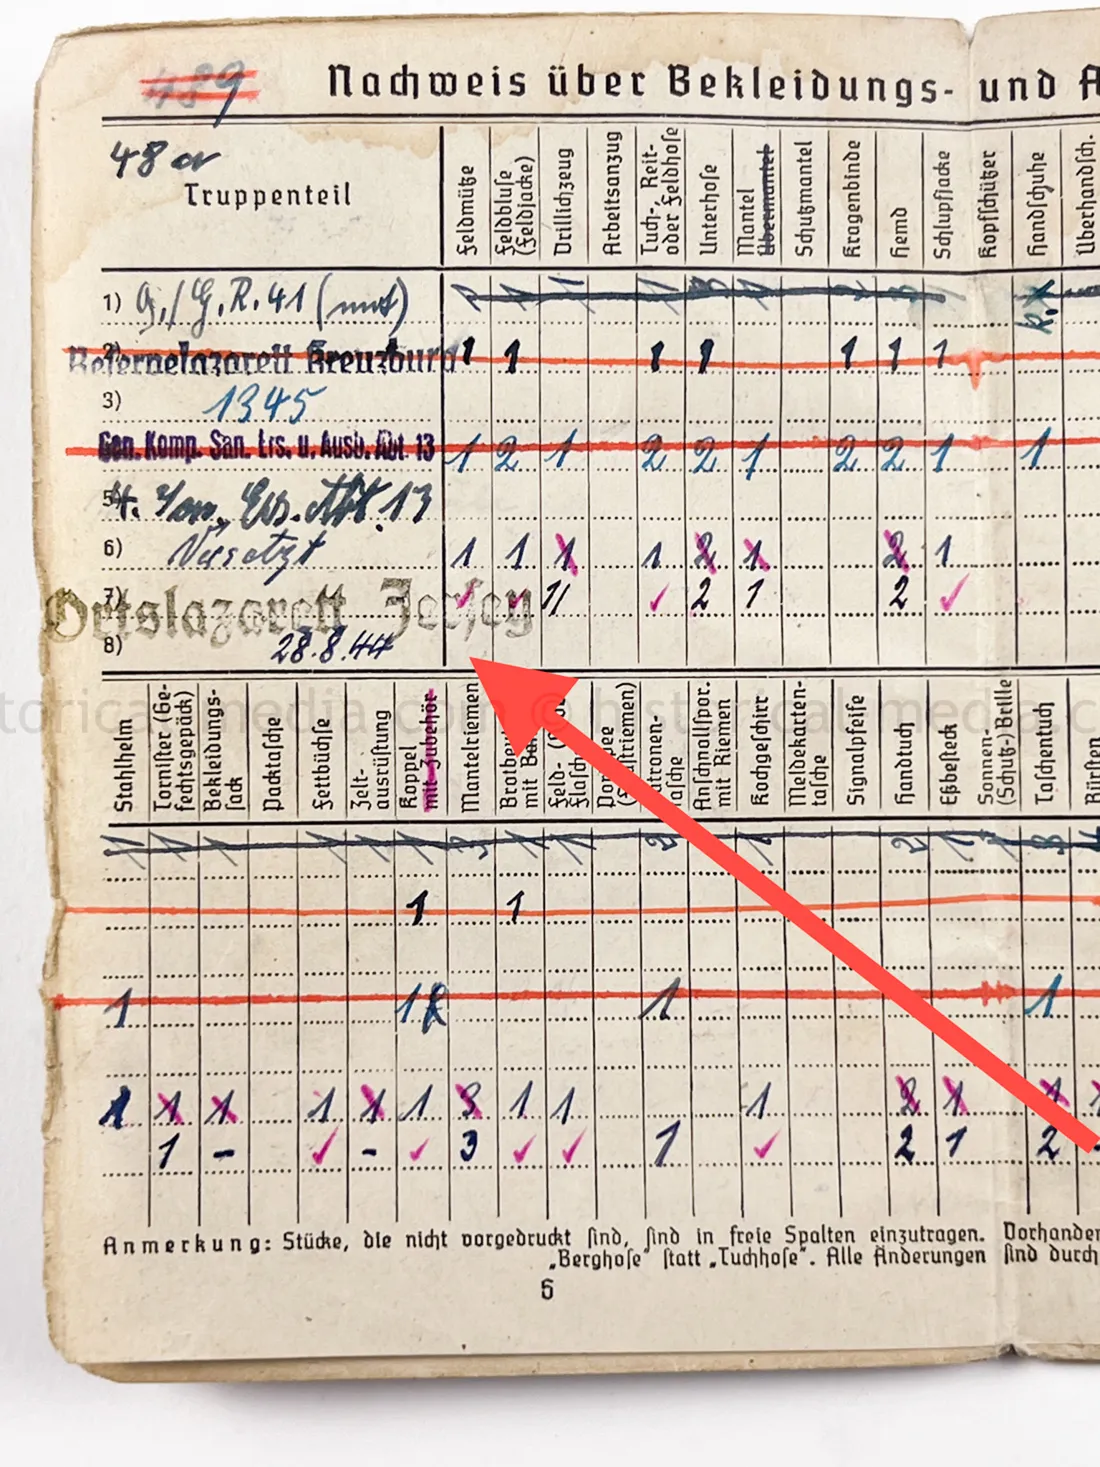 489
Nachweis über Bekleidungs- und A
48 a
Truppenteil
Feldmütze
Feldbluse (Feldjacke)
Drillichzeug
Arbeitsanzug
Tuch-, Reit- oder Feldhose
Unterhose
Mantel Übermantel
Schutzmantel
Kragenbinde
Hemd
Schlupfjacke
Kopfschützer
Handschuhe
Überhandsch.
1) G./G.R.41 (mot) 1 1 1 1 3 1 2 3 1
2) Reservelazarett Kreuzburg 1 1 1 1 1 1 1
3) 1345
Gen. Komp. San. Ers. u. Ausb. Abt. 13 1 2 1 2 2 1 2 2 1 1
5) 4. San. Ers. Abt. 13
6) Versetzt 1 1 1 1 2 1 2 1
7) Ortslazarett Jersey 11 2 1 2
8) 28.8.44
Stahlhelm
Tornister (Gefechtsgepäck)
Bekleidungs-sack
Packtasche
Fettbüchse
Zelt-ausrüstung
Koppel mit Zubehör
Mantelriemen
Brotbeu
mit Ba
Feld-
flasch
Patronen-
tasche
Anschnallspor. mit Riemen
Kochgeschirr
Meldekarten-tasche
Signalpfeife
Handtuch
Eßbesteck
Sonnen-(Schutz-) Brille
Taschentuch
Bürsten
1 1 1 1 1 1 3 1 1 2 1 2 1
1 1
1 1 1 1
1 1 1 1 1 1 3 1 1 1 2 1 1
1 - - 3 1 2 1 2
Anmerkung: Stücke, die nicht vorgedruckt sind, sind in freie Spalten einzutragen. Vorhanden
„Berghose" statt „Tuchhose". Alle Änderungen sind durch
6
historical-media.com © historical-media.c